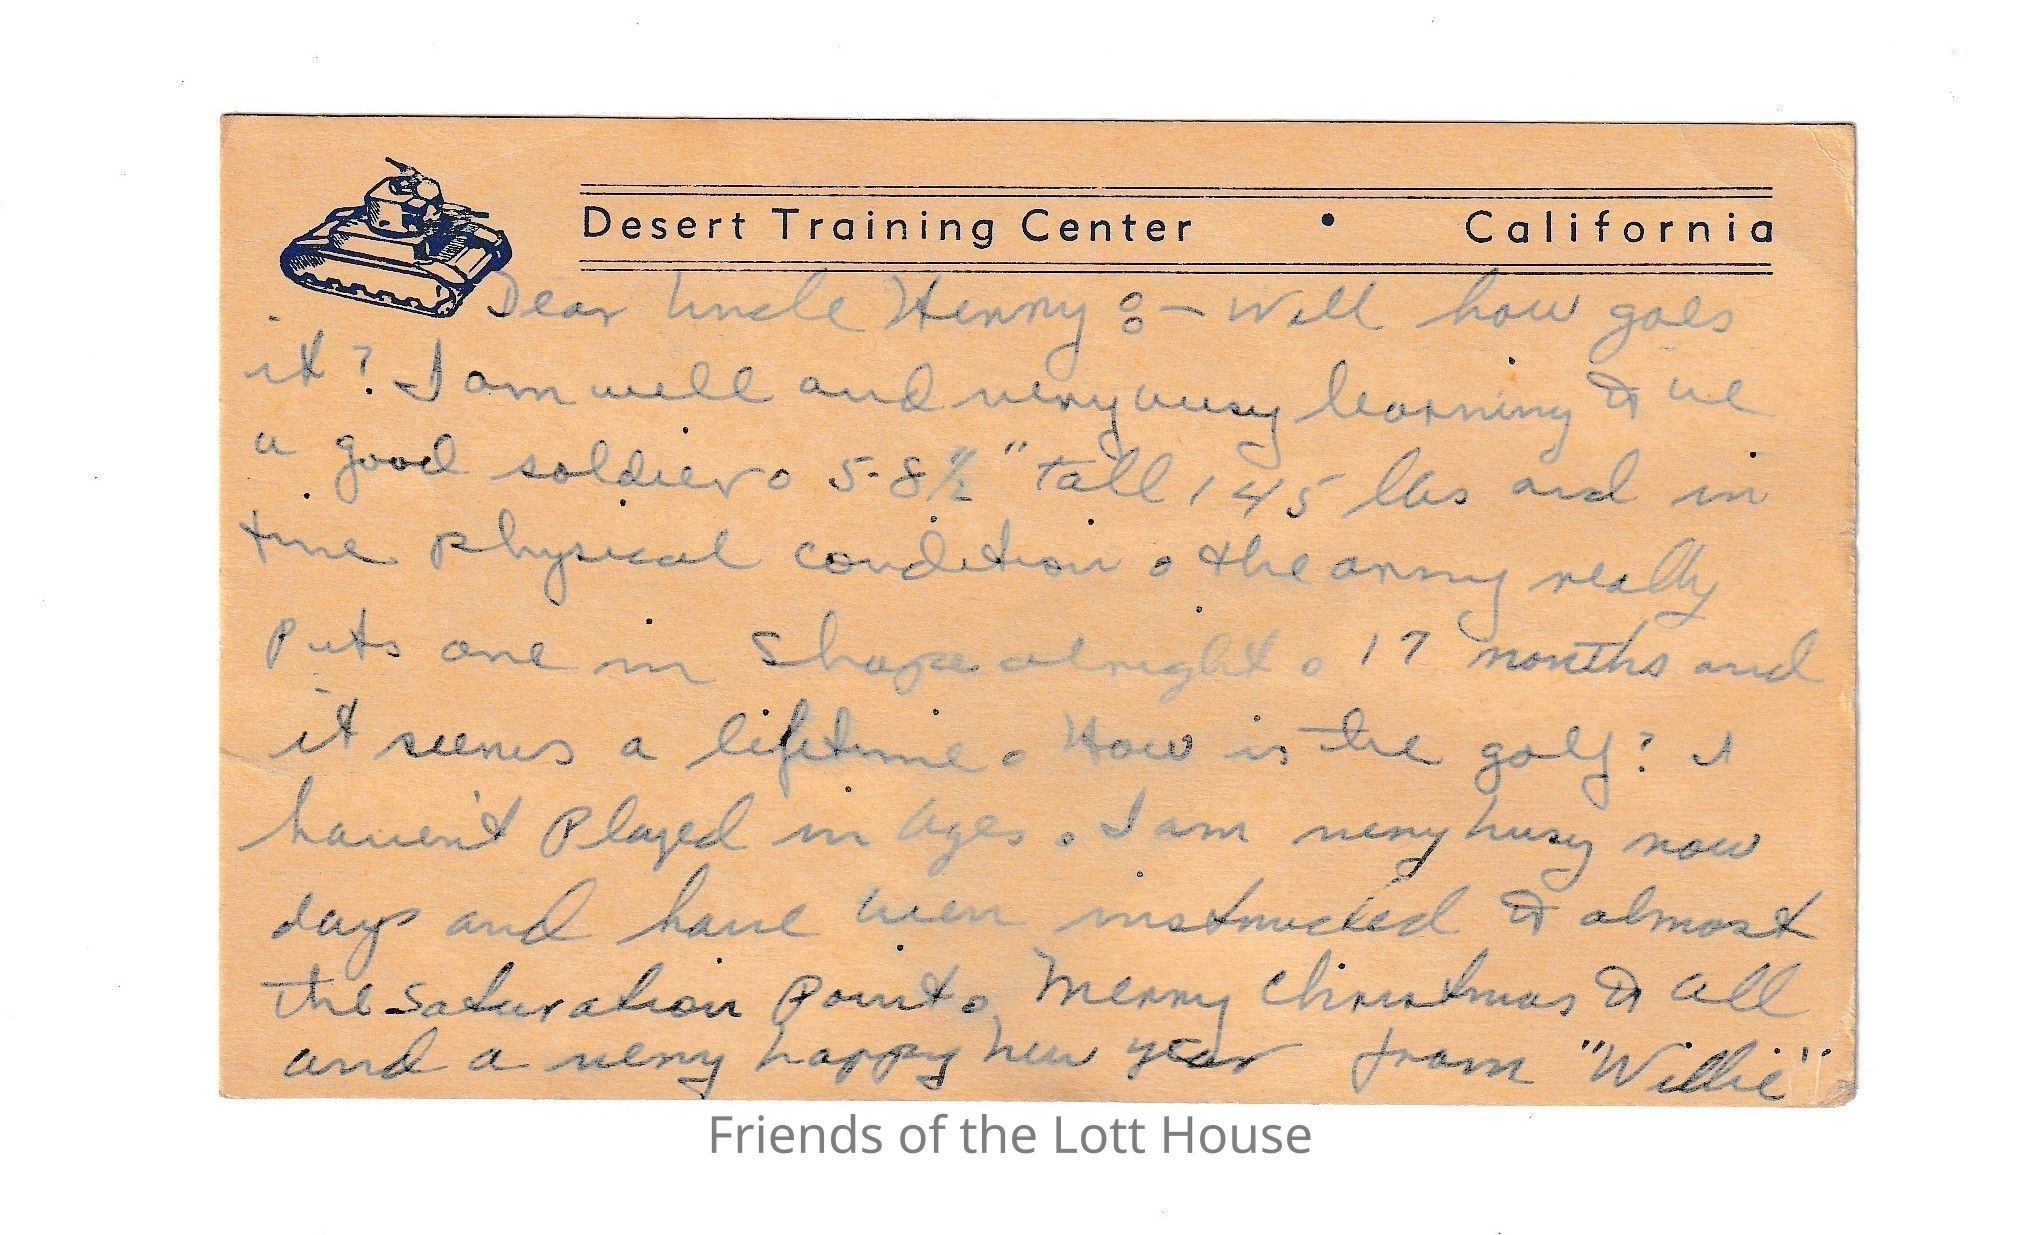 Desert Training Center • California
Dear Uncle Henry :- Well how goes
it? I am well and very busy learning to be
a good soldier. 5-8½" tall 145 lbs and in
fine physical condition. the army really
puts one in shape alright. 17 months and
it seems a lifetime. How is the golf? I
haven't played in ages. I am very busy now
days and have been instructed to almost
the saturation point. Merry Christmas to all
and a very happy new year from "Willie"
Friends of the Lott House